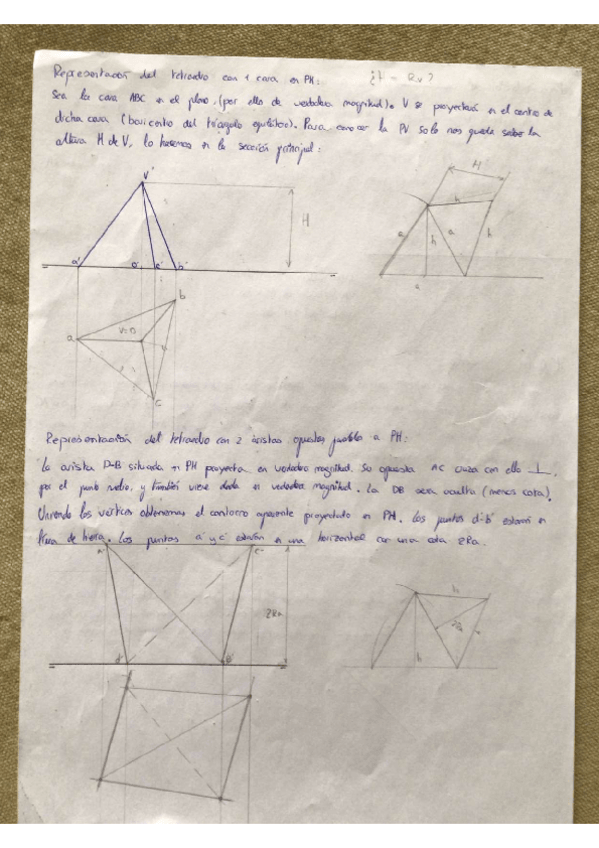 Representación del tetraedro con 1 cara en PH:
Sea la cara ABC en el plano, (por ello de verdadera magnitud) y V se proyectará en el centro de
dicha cara (baricentro del triángulo equilátero). Para conocer la PV solo nos queda saber la
altura H de V, lo hacemos en la sección principal:
V'
H
a' o' c' b'
H
a h h a h
a
b
a V=O
c
Representación del tetraedro con 2 aristas opuestas paralelas a PH:
La arista D-B situada en PH proyecta en verdadera magnitud. Su opuesta AC cruza con ella ⊥,
por el punto medio, y también viene dada en verdadera magnitud. La DB será oculta (menos cota).
Uniendo los vértices obtenemos el contorno aparente proyectado en PH. Los puntos d'-b' estarán en
línea de tierra. Los puntos a' y c' estarán en una horizontal con una cota 2Ra.
a' c'
2Ra
d' b'
h
2Ra
h